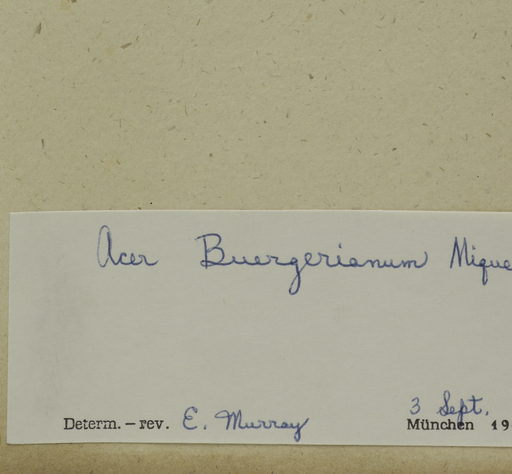 Acer Buergerianum Mique
3 Sept.
Determ. — rev. E. Murray München 19